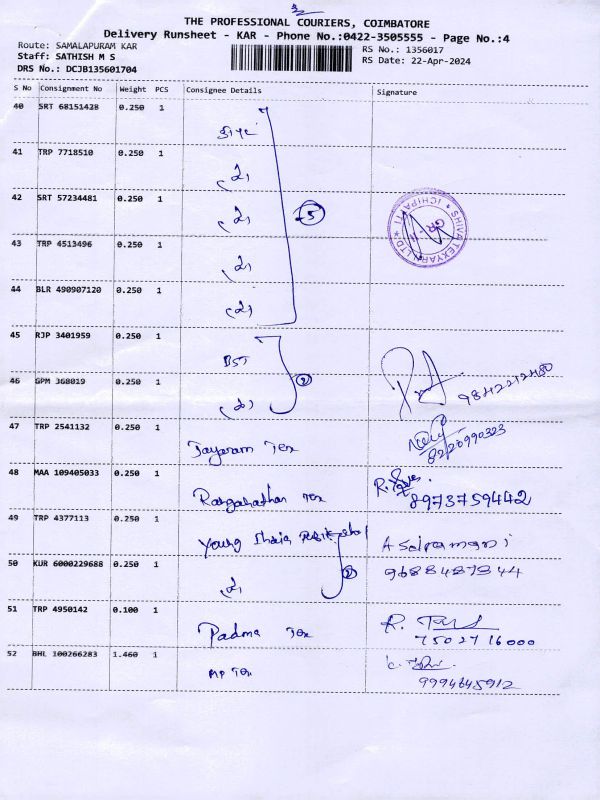 THE PROFESSIONAL COURIERS, COIMBATORE
Delivery Runsheet - KAR - Phone No.:0422-3505555 - Page No.:4
Route: SAMALAPURAM KAR
Staff: SATHISH M S
DRS No.: DCJB135601704
RS No.: 1356017
RS Date: 22-Apr-2024
S No Consignment No Weight PCS Consignee Details Signature
40 SRT 68151428 0.250 1
41 TRP 7718510 0.250 1
42 SRT 57234481 0.250 1
5
43 TRP 4513496 0.250 1
44 BLR 490907120 0.250 1
45 RJP 3401959 0.250 1
BST
46 GPM 368019 0.250 1
2
9842212480
47 TRP 2541132 0.250 1
Jayaram Tex
8220990323
48 MAA 109405033 0.250 1
Ranganathan Tex
8973759442
49 TRP 4377113 0.250 1
Young
50 KUR 6000229688 0.250 1
2
9688487344
51 TRP 4950142 0.100 1
Padma Tex
7502716000
52 BHL 100266283 1.460 1
MP Tex
9994645912